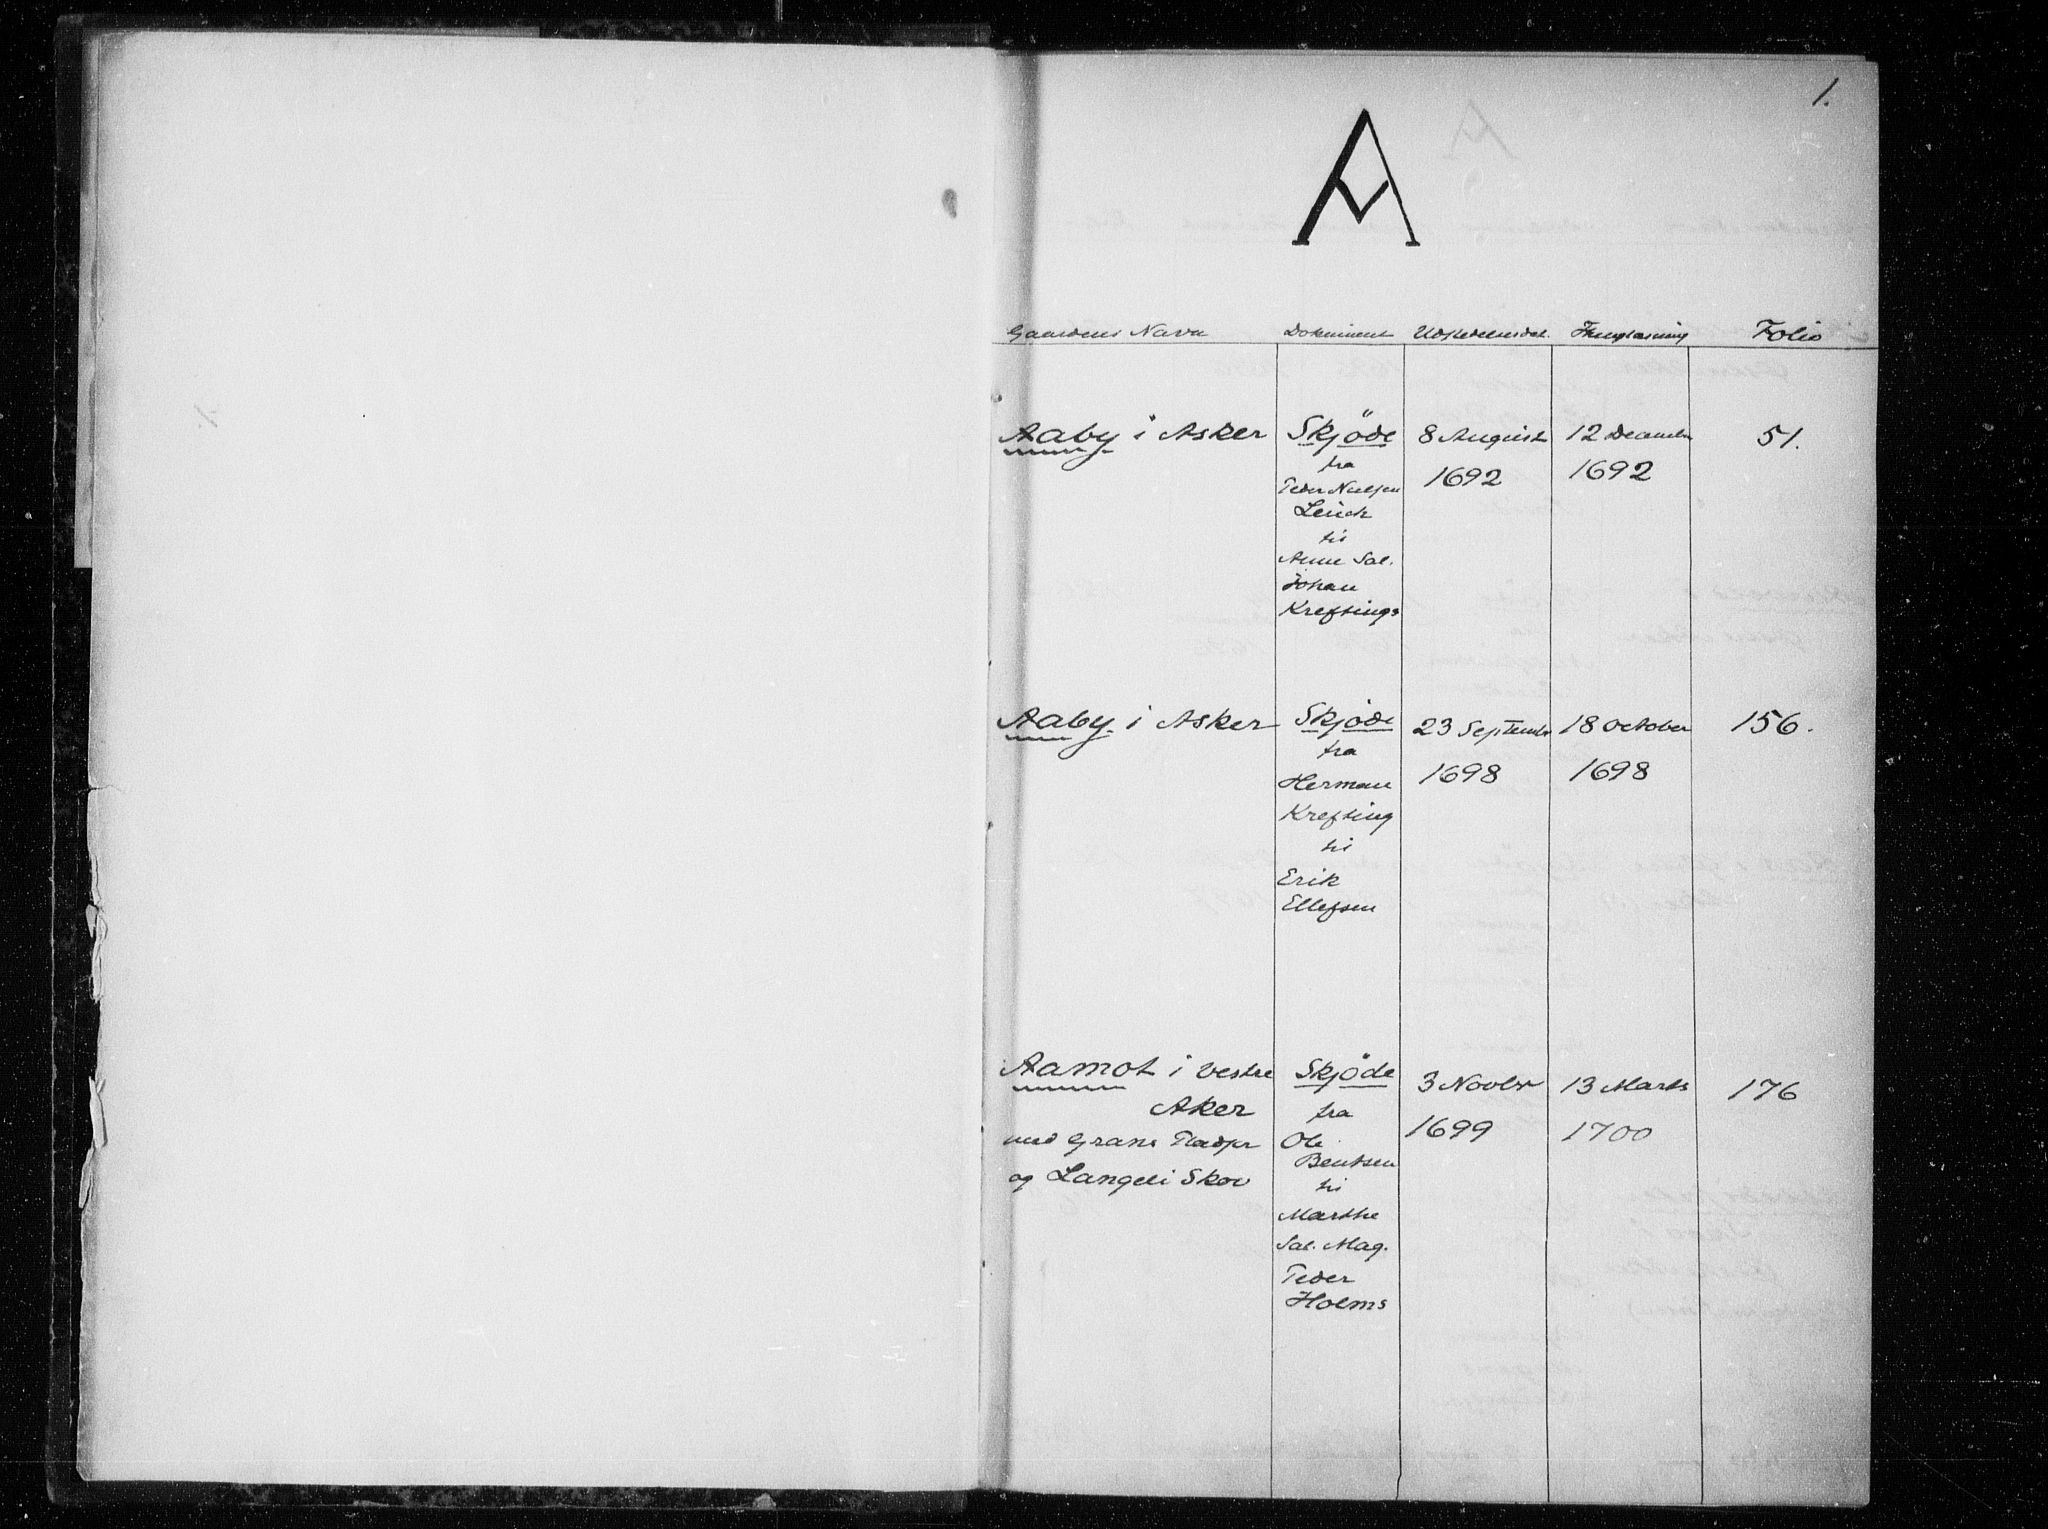 1.
A
Gaardens Navn Dokument Udstedelsesdat. Thinglæsning Folio
Aaby i Asker Skjöde 8 August 12 Decembr 51.
fra 1692 1692
Peder Nielsen
Leuch
til
Anne Sal.
Johan
Kreftings
Aaby i Asker Skjöde 23 Septembr 18 October 156.
fra 1698 1698
Herman
Krefting
til
Erik
Ellefsen
Aamot i Vestre Skjöde 3 Novbr 13 Marts 176
Aker fra 1699 1700
med Grans Pladser Ole
Bentsen
og Langeli Skov til
Marthe
Sal. Mag.
Peder
Holms